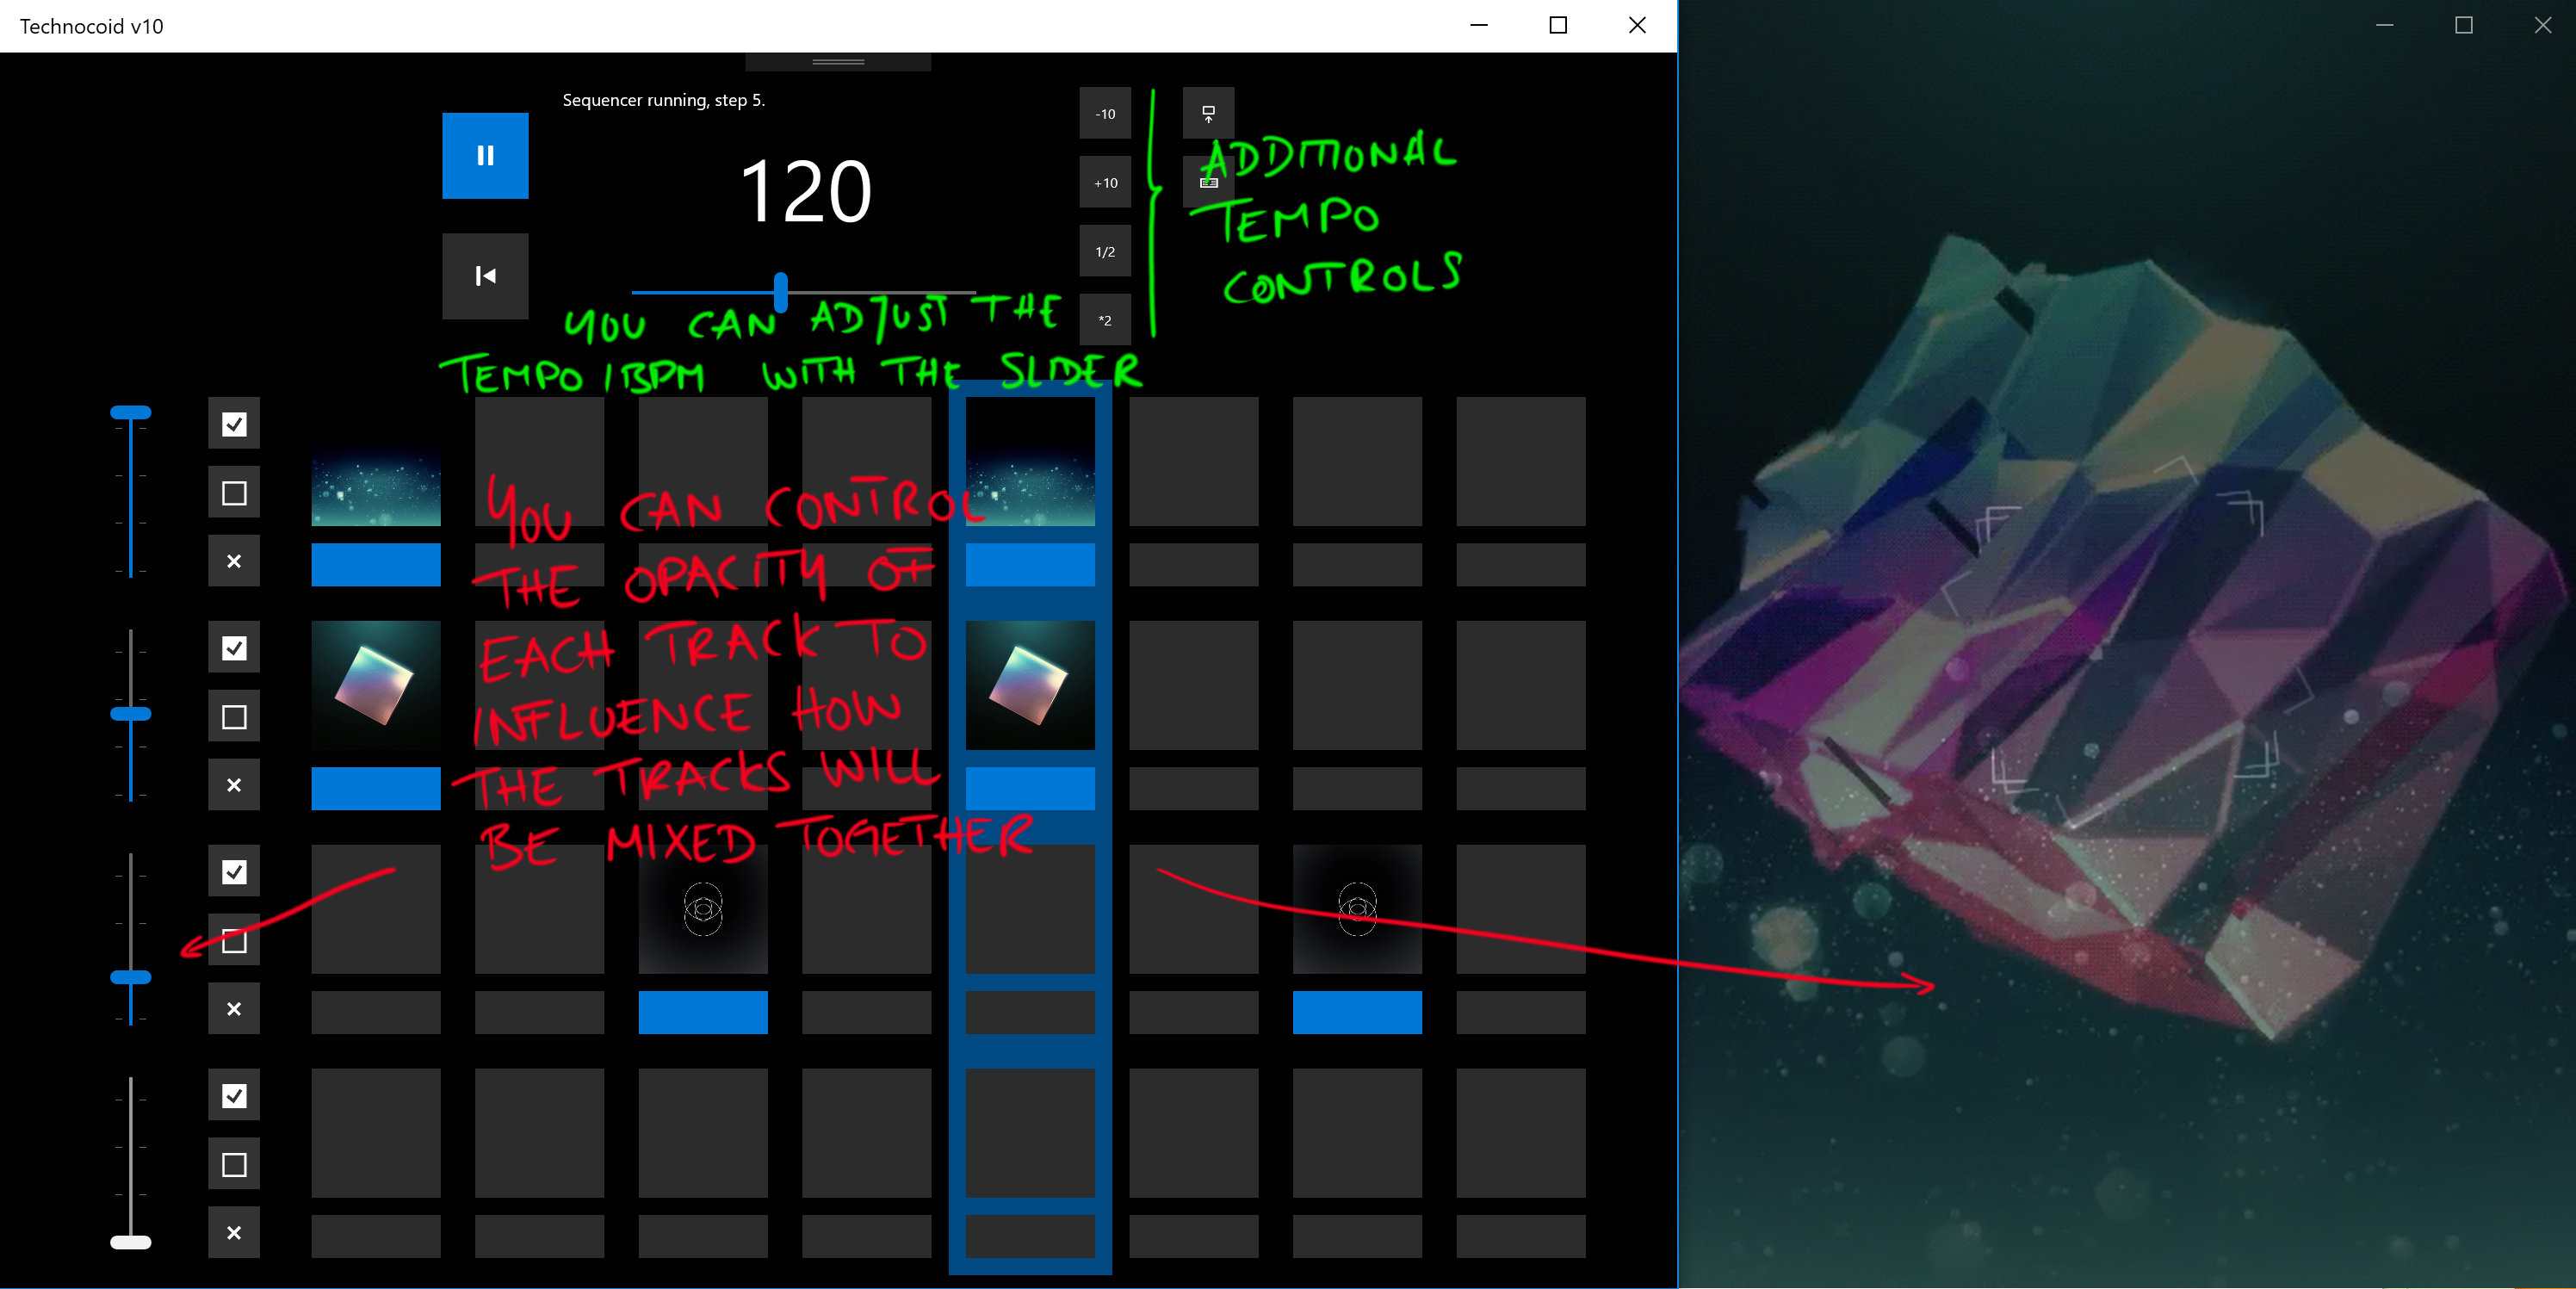 Technocoid v10
Sequencer running, step 5.
120
-10
+10
1/2
*2
ADDITIONAL
TEMPO
CONTROLS
YOU CAN ADJUST THE
TEMPO / BPM WITH THE SLIDER
YOU CAN CONTROL
THE OPACITY OF
EACH TRACK TO
INFLUENCE HOW
THE TRACKS WILL
BE MIXED TOGETHER